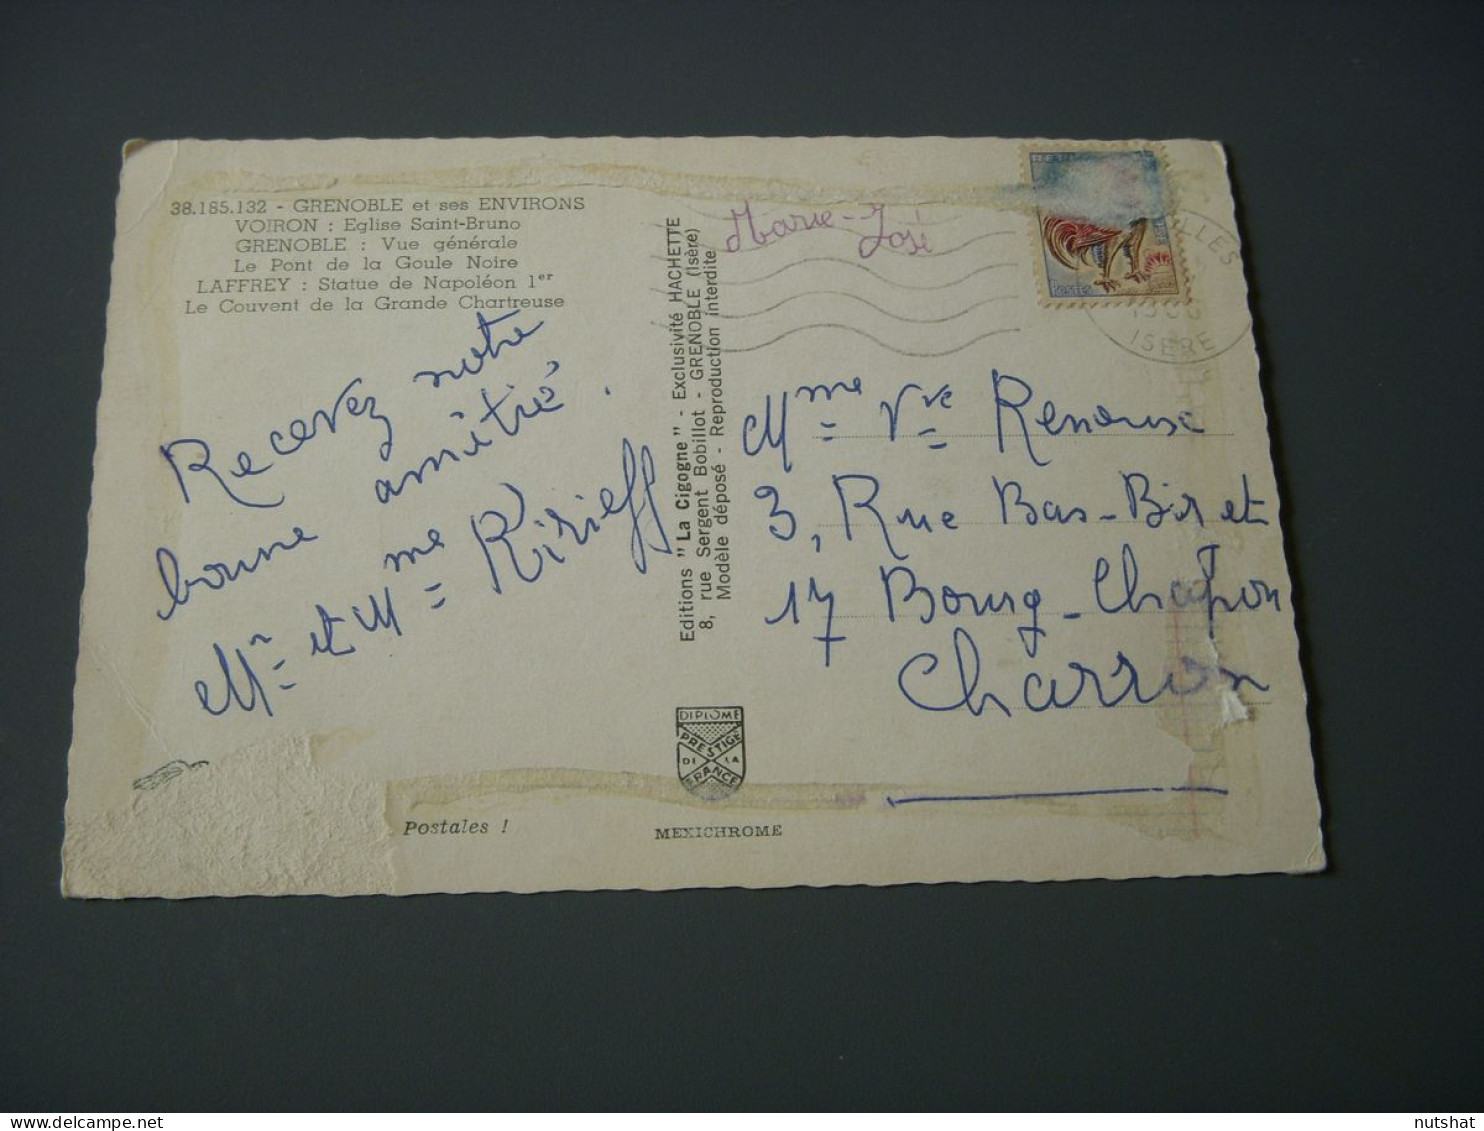 38.185.132 - GRENOBLE et ses ENVIRONS
VOIRON : Eglise Saint-Bruno
GRENOBLE : Vue générale
Le Pont de la Goule Noire
LAFFREY : Statue de Napoléon 1er
Le Couvent de la Grande Chartreuse
Recevez notre
bonne amitié.
Mr et Mme Kirieff
Postales !
Editions "La Cigogne" - Exclusivité HACHETTE
8, rue Sergent Bobillot - GRENOBLE (Isère)
Modèle déposé - Reproduction interdite
DIPLOME
PRESTIGE
DE LA
FRANCE
MEXICHROME
Marie-José
POSTES
ISERE
Mme Vve
3, Rue Bas-Biret
17 Bourg-Chapon
Charron
nutshat